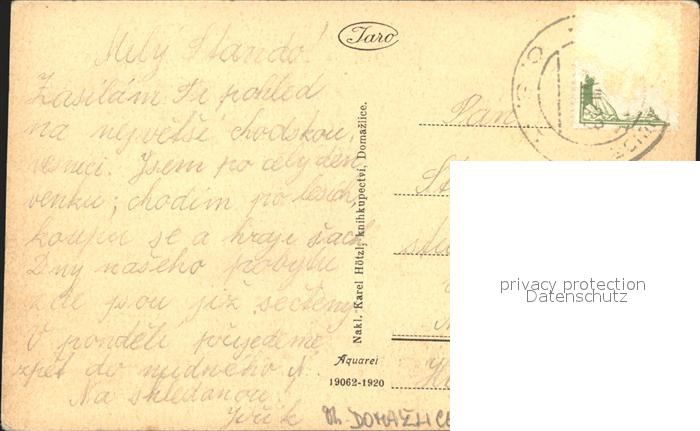 Milý Stando!
Zasílám Ti pohled
na největší chodskou
vesnici. Jsem po celý den
venku; chodím po lesích,
koupu se a hraji šach
Dny našeho pobytu
zde jsou již sečteny
V pondělí přijedeme
zpět do
Na shledanou
Jiřík
Jaro
Nakl. Karel Hötzl, knihkupectví, Domažlice.
Aquarel
19062-1920
Pan
DOMAŽLICE
privacy protection
Datenschutz